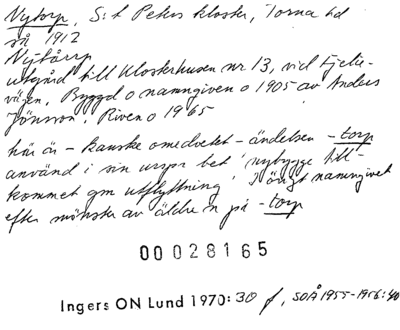 Nytorp, S:t Peters kloster, Torna hd
så 1912
Nýtårp
utgård till Klosterhusen nr 13, vid Fjelie-
vägen. Byggd o namngiven o 1905 av Anders
Jönsson. Riven o 1965
här är - kanske omedvetet - ändelsen -torp
använd i sin urspr bet 'nybygge till-
kommet gm utflyttning'. I övrigt namngivet
efter mönster av äldre n på -torp
00028165
Ingers ON Lund 1970:30 f, SOÅ 1955-1956:40